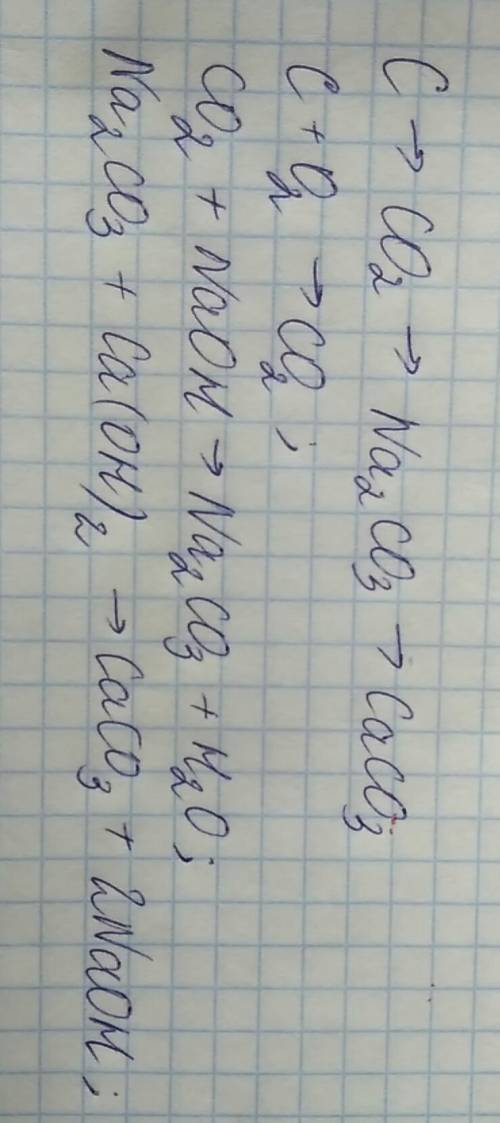 C → CO₂ → Na₂CO₃ → CaCO₃
C + O₂ → CO₂ ;
CO₂ + NaOH → Na₂CO₃ + H₂O ;
Na₂CO₃ + Ca(OH)₂ → CaCO₃ + 2NaOH ;